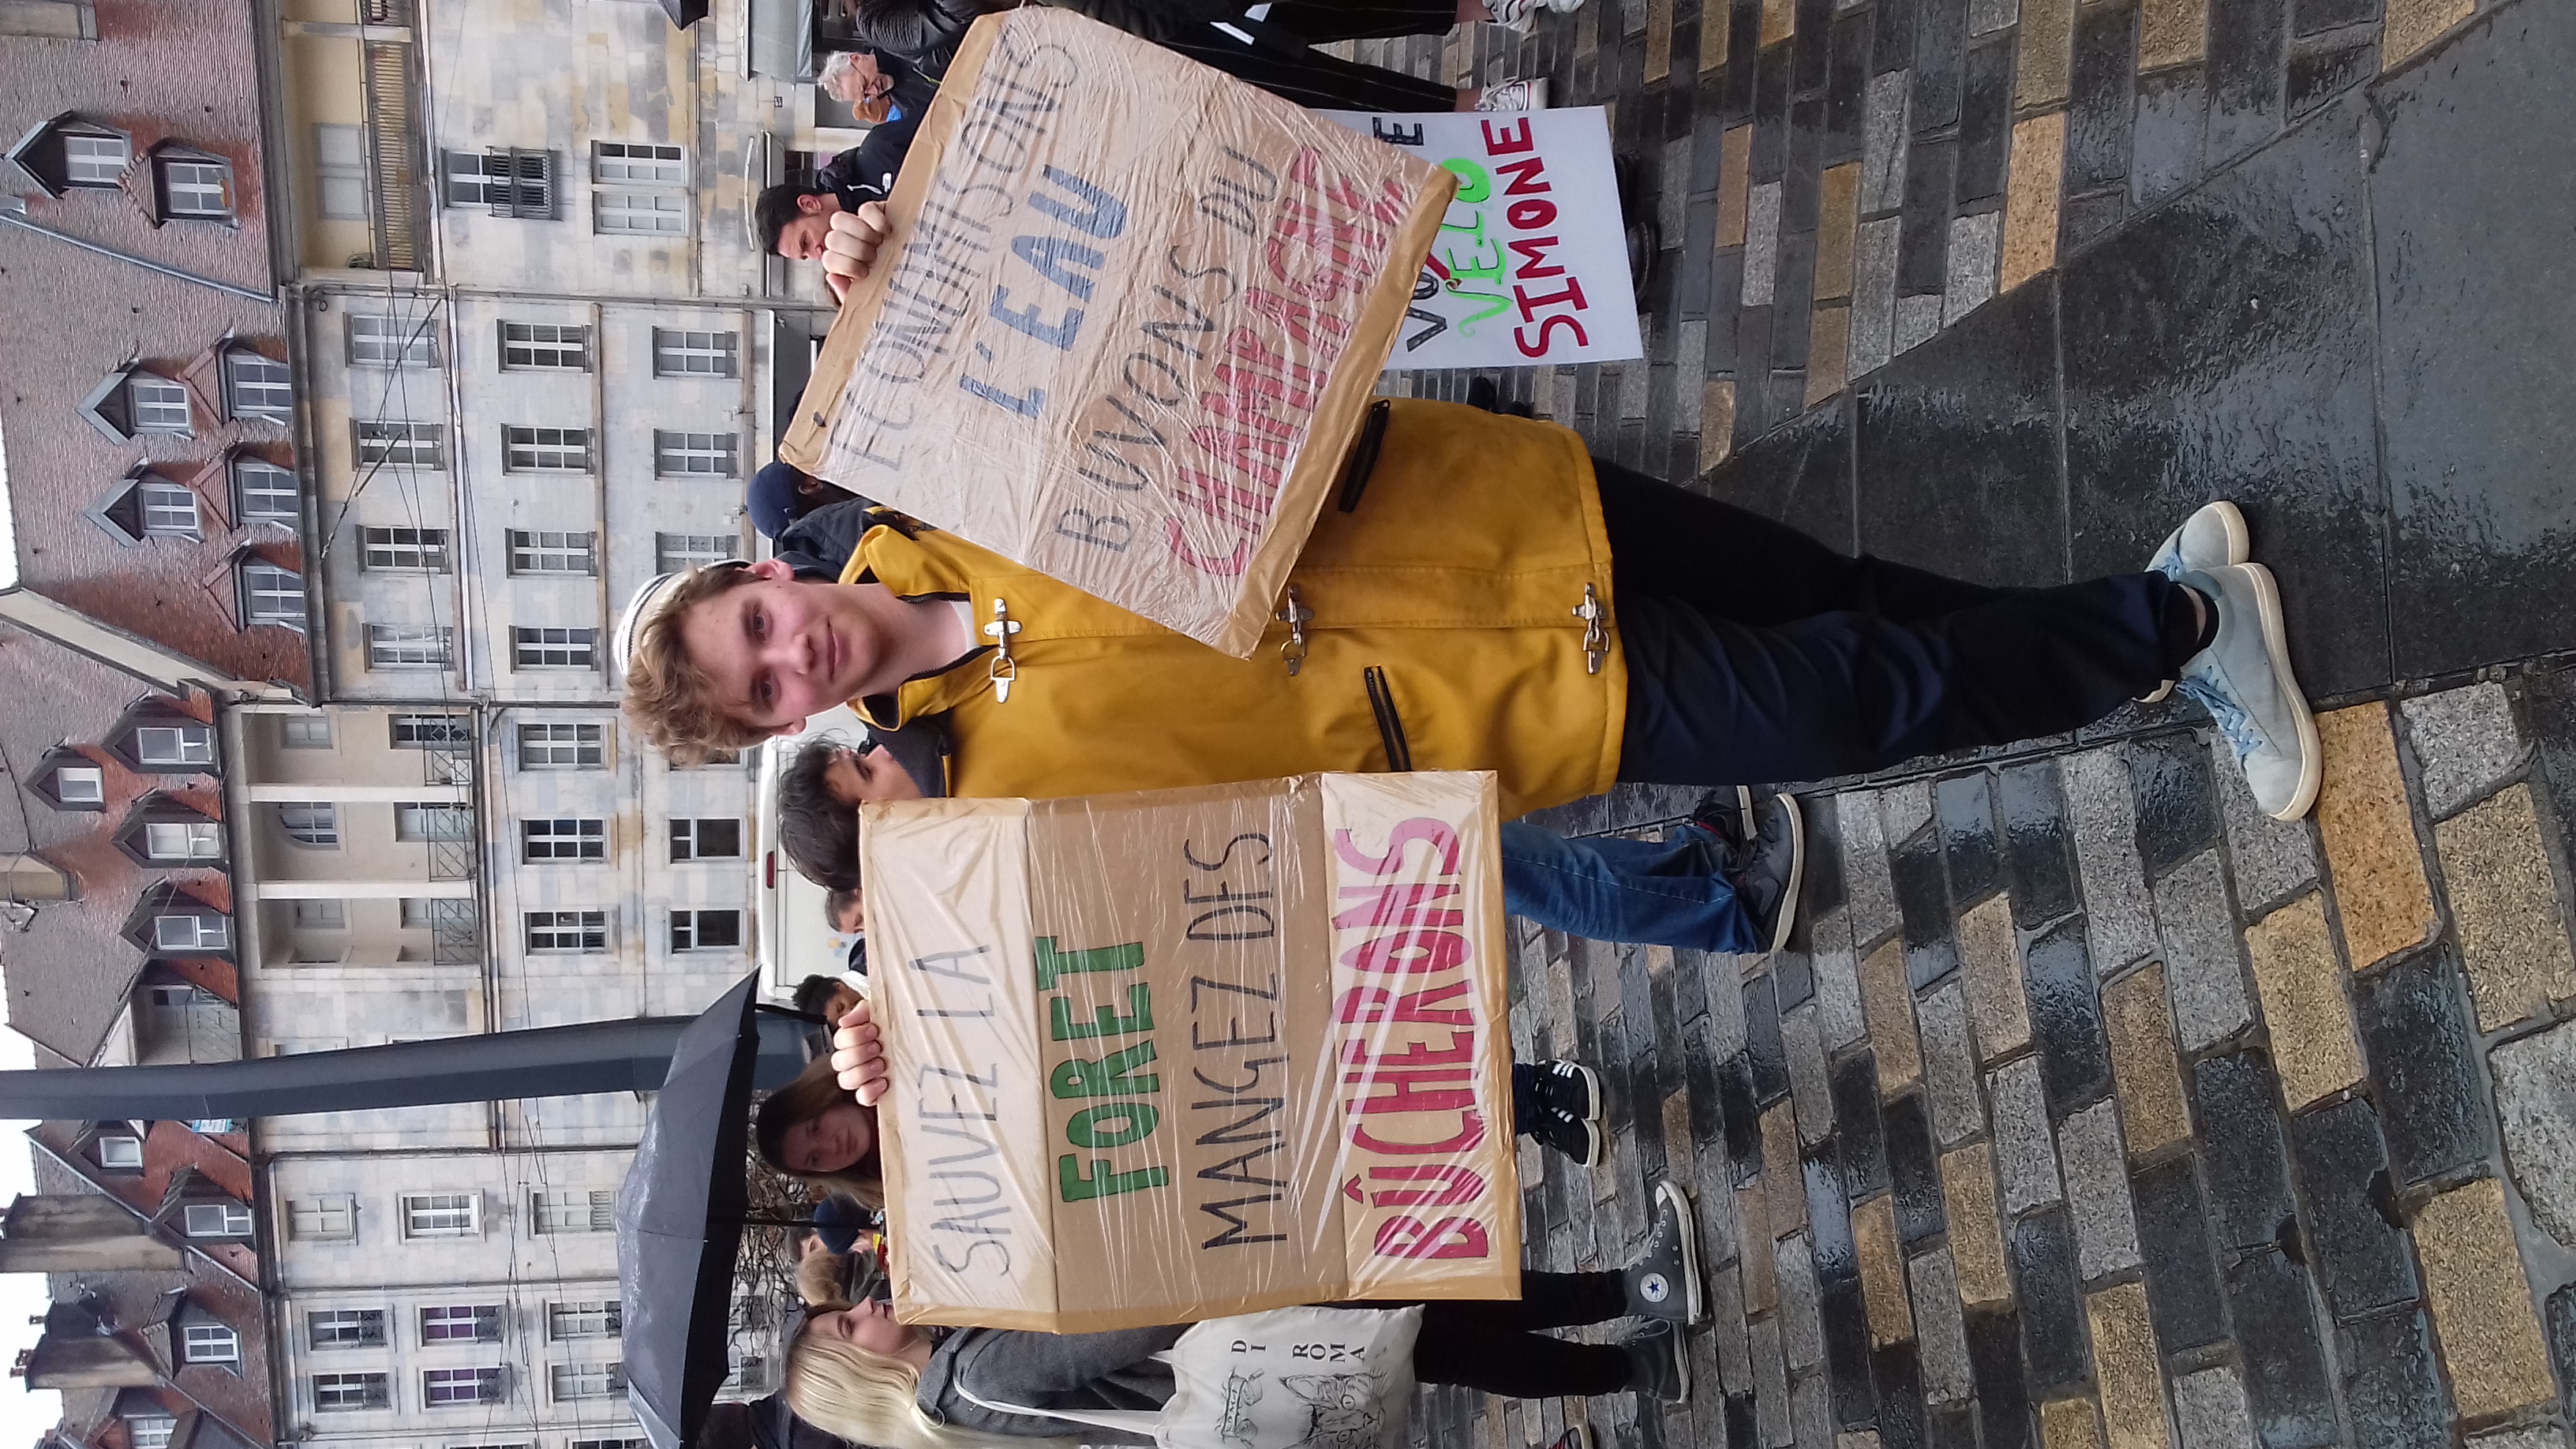 SAUVEZ LA
FORET
MANGEZ DES
BÛCHERONS
ÉCONOMISONS
L'EAU
BUVONS DU
CHAMPAGNE
VÉLO
SIMONE
DI
ROMA